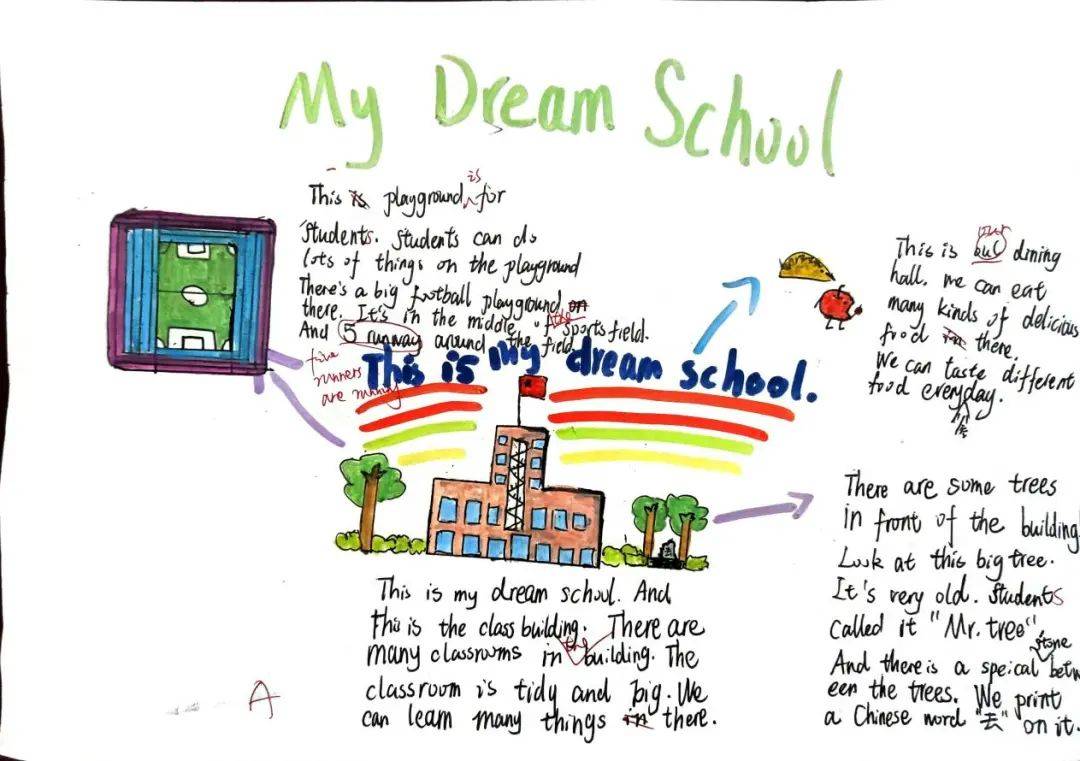 My Dream School
is
This is playground for
Students. Students can do
lots of things on the playground
There's a big football playground on
there. It's in the middle of the sports field.
And 5 runway around the field.
five
runners
are running
This is my dream school.
our
This is out dining
hall. we can eat
many kinds of delicious
food in there.
We can taste different
food everyday.
There are some trees
in front of the building
Look at this big tree.
It's very old. Students
called it "Mr. tree".
stone
And there is a speical betw
een the trees. We print
a Chinese word "去" on it.
This is my dream school. And
this is the class building. There are
the
many classrooms in building. The
classroom is tidy and big. We
can learn many things in there.
A